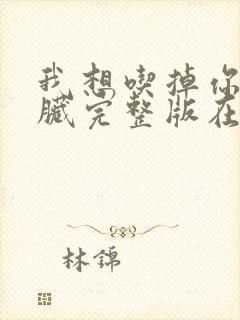 我想喫掉你
臟完整版在
林錦